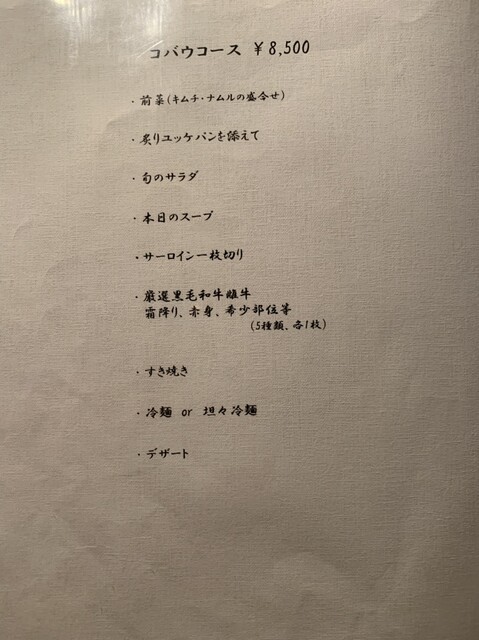 コバウコース ￥8,500
・前菜(キムチ・ナムルの盛合せ)
・炙りユッケパンを添えて
・旬のサラダ
・本日のスープ
・サーロイン一枚切り
・厳選黒毛和牛雌牛
霜降り、赤身、希少部位等
(5種類、各1枚)
・すき焼き
・冷麺 or 坦々冷麺
・デザート